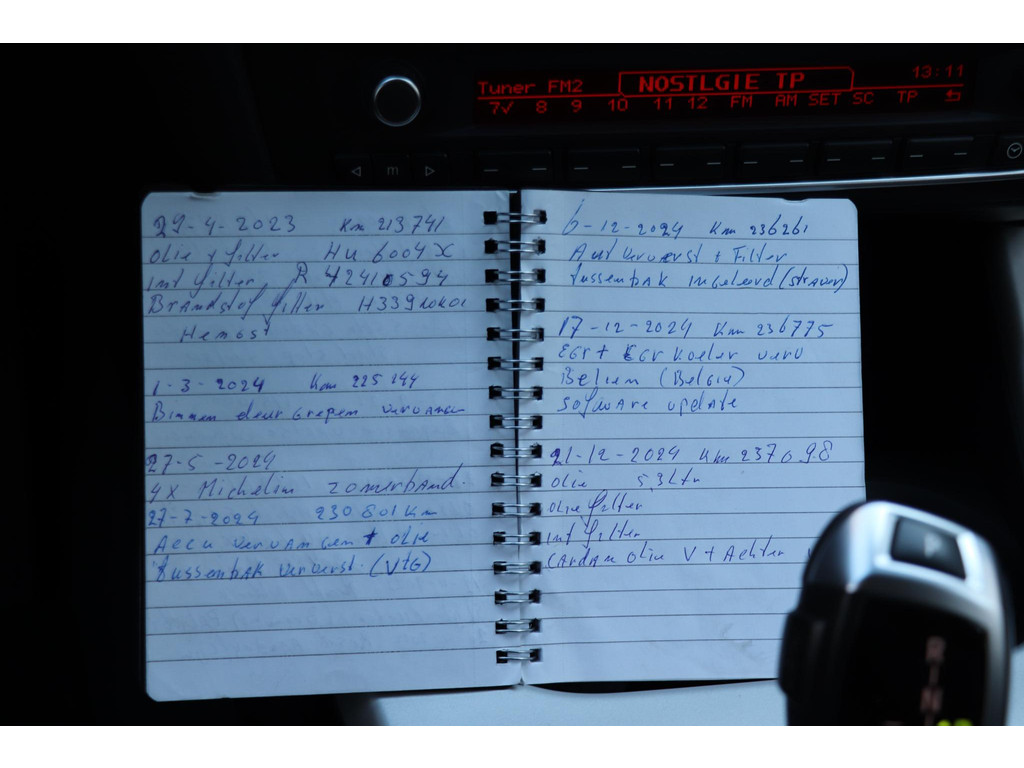 Tuner FM2
NOSTLGIE TP
13:11
7✓ 8 9 10 11 12 FM AM SET SC TP
m
29-4-2023 Km 213741
olie + filter HU 6004X
int filter R
Brandstof filter
1-3-2024 Km 225144
Binnen deur Grepen vervangen
27-5-2024
4x Michelin zomerband.
27-7-2024 230801 Km
Accu vervangen + olie
tussenbak ververst. (VTG)
6-12-2024 Km 236261
Aut ververst + Filter
tussenbak ingeleerd
17-12-2024 Km 236775
EGR + EGR Koeler verv
(Belgie)
software update
21-12-2024 Km 237098
olie 5,3Ltr
olie filter
int filter
Cardan olie V + Achter
R
N